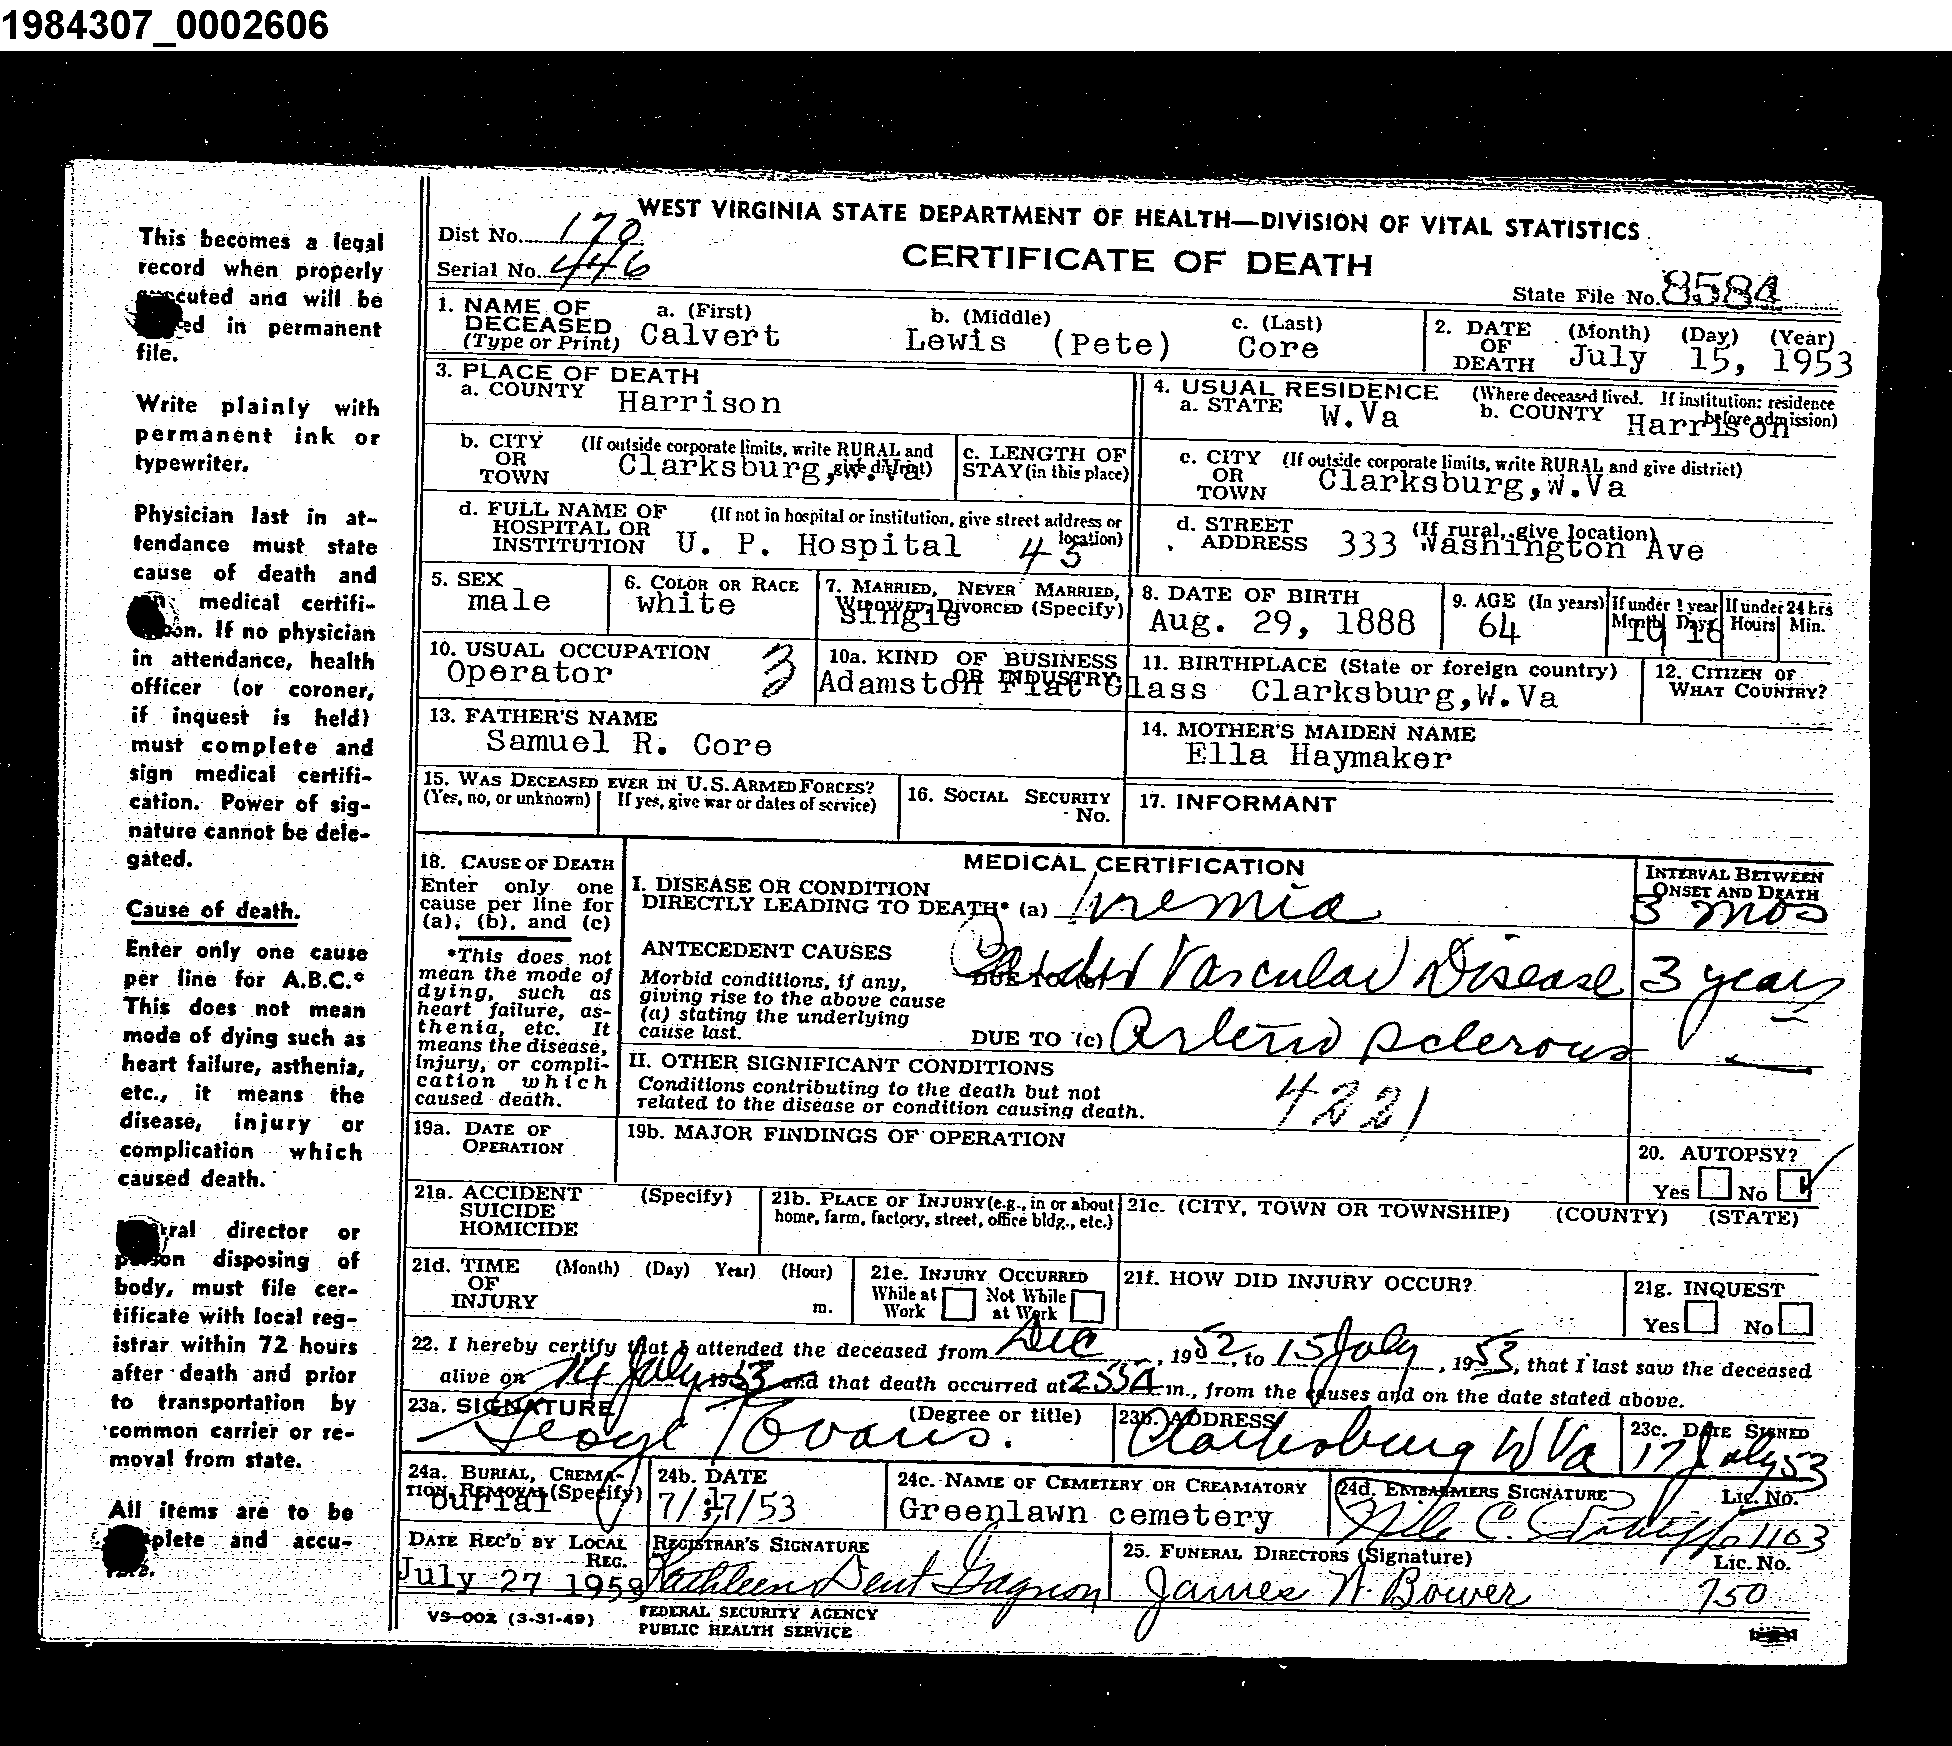 1984307_0002606
This becomes a legal
record when properly
executed and will be
ed in permanent
file.
Write plainly with
permanent ink or
typewriter.
Physician last in at-
tendance must state
cause of death and
medical certifi-
on. If no physician
in attendance, health
officer (or coroner,
if inquest is held)
must complete and
sign medical certifi-
cation. Power of sig-
nature cannot be dele-
gated.
Cause of death.
Enter only one cause
per line for A.B.C.*
This does not mean
mode of dying such as
heart failure, asthenia,
etc., it means the
disease, injury or
complication which
caused death.
ral director or
person disposing of
body, must file cer-
tificate with local reg-
istrar within 72 hours
after death and prior
to transportation by
common carrier or re-
moval from state.
All items are to be
plete and accu-
WEST VIRGINIA STATE DEPARTMENT OF HEALTH—DIVISION OF VITAL STATISTICS
Dist No. 170
CERTIFICATE OF DEATH
Serial No. 446
State File No. 8584
1. NAME OF DECEASED (Type or Print) a. (First) Calvert b. (Middle) Lewis (Pete) c. (Last) Core
2. DATE OF DEATH (Month) (Day) (Year) July 15, 1953
3. PLACE OF DEATH
a. COUNTY Harrison
4. USUAL RESIDENCE (Where deceased lived. If institution: residence before admission)
a. STATE W.Va b. COUNTY Harrison
b. CITY OR TOWN (If outside corporate limits, write RURAL and give district) Clarksburg,W.Va
c. LENGTH OF STAY (in this place)
c. CITY OR TOWN (If outside corporate limits, write RURAL and give district) Clarksburg,W.Va
d. FULL NAME OF HOSPITAL OR INSTITUTION (If not in hospital or institution, give street address or location) U. P. Hospital 43
d. STREET ADDRESS (If rural, give location) 333 Washington Ave
5. SEX male
6. COLOR OR RACE white
7. MARRIED, NEVER MARRIED, WIDOWED, DIVORCED (Specify) Single
8. DATE OF BIRTH Aug. 29, 1888
9. AGE (In years) 64 If under 1 year Months Days 10 16 If under 24 hrs Hours Min.
10. USUAL OCCUPATION Operator 3
10a. KIND OF BUSINESS OR INDUSTRY Adamston Flat Glass
11. BIRTHPLACE (State or foreign country) Clarksburg,W.Va
12. CITIZEN OF WHAT COUNTRY?
13. FATHER'S NAME Samuel R. Core
14. MOTHER'S MAIDEN NAME Ella Haymaker
15. WAS DECEASED EVER IN U.S. ARMED FORCES?
(Yes, no, or unknown) If yes, give war or dates of service)
16. SOCIAL SECURITY No.
17. INFORMANT
18. CAUSE OF DEATH
Enter only one
cause per line for
(a), (b), and (c)
*This does not
mean the mode of
dying, such as
heart failure, as-
thenia, etc. It
means the disease,
injury, or compli-
cation which
caused death.
MEDICAL CERTIFICATION
INTERVAL BETWEEN ONSET AND DEATH
I. DISEASE OR CONDITION
DIRECTLY LEADING TO DEATH* (a) Uremia 3 mos
ANTECEDENT CAUSES
Morbid conditions, if any,
giving rise to the above cause
(a) stating the underlying
cause last.
DUE TO Vascular Disease 3 years
DUE TO (c) Arterio sclerous
II. OTHER SIGNIFICANT CONDITIONS
Conditions contributing to the death but not
related to the disease or condition causing death.
4221
19a. DATE OF OPERATION
19b. MAJOR FINDINGS OF OPERATION
20. AUTOPSY?
Yes No
21a. ACCIDENT SUICIDE HOMICIDE (Specify)
21b. PLACE OF INJURY (e.g., in or about home, farm, factory, street, office bldg., etc.)
21c. (CITY, TOWN OR TOWNSHIP) (COUNTY) (STATE)
21d. TIME OF INJURY (Month) (Day) Year) (Hour) m.
21e. INJURY OCCURRED
While at Work Not While at Work
21f. HOW DID INJURY OCCUR?
21g. INQUEST
Yes No
22. I hereby certify that I attended the deceased from Dec, 1952, to 15 July, 1953, that I last saw the deceased
alive on 14 July, 1953 and that death occurred at 255A m., from the causes and on the date stated above.
23a. SIGNATURE (Degree or title) George Evans.
23b. ADDRESS Clarksburg W Va
23c. DATE SIGNED 17 July 53
24a. BURIAL, CREMATION REMOVAL (Specify) burial
24b. DATE 7/17/53
24c. NAME OF CEMETERY OR CREAMATORY Greenlawn cemetery
24d. EMBALMERS SIGNATURE Lic. No. 1103
DATE REC'D BY LOCAL REG. July 27 1953
REGISTRAR'S SIGNATURE Kathleen Dent Gagnon
25. FUNERAL DIRECTORS (Signature) James N. Bower Lic. No. 750
VS-002 (3-31-49)
FEDERAL SECURITY AGENCY
PUBLIC HEALTH SERVICE